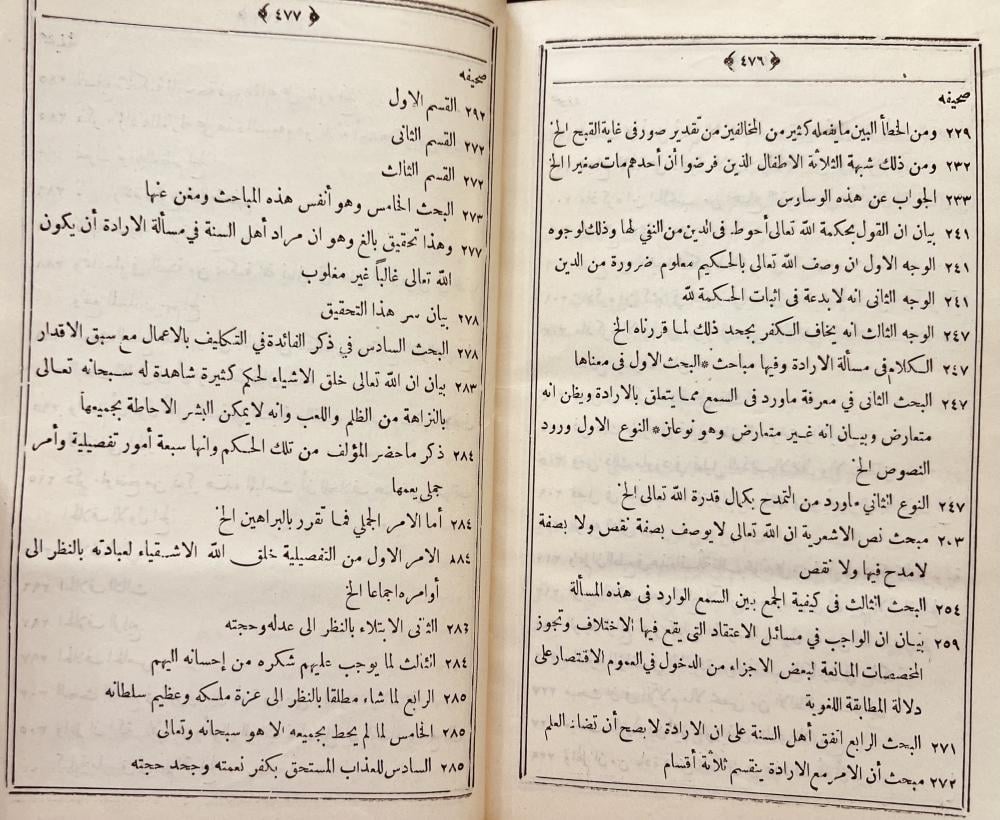 ﴿ ٤٧٦ ﴾
صحيفه
٢٢٩ ومن الخطأ البين ما يفعله كثير من المخالفين من تقدير صور فى غاية القبح الخ
٢٣٢ ومن ذلك شبهة الثلاثة الاطفال الذين فرضوا أن أحدهم مات صغيرا الخ
٢٣٣ الجواب عن هذه الوساوس
٢٤١ بيان ان القول بحكمة الله تعالى أحوط فى الدين من النفي لها وذلك لوجوه
٢٤١ الوجه الاول ان وصف الله تعالى بالحكيم معلوم ضرورة من الدين
٢٤١ الوجه الثانى انه لا بدعة فى اثبات الحكمة لله
٢٤٧ الوجه الثالث انه يخاف الكفر بجحد ذلك لما قررناه الخ
٢٤٧ الكلام فى مسألة الارادة وفيها مباحث * البحث الاول فى معناها
٢٤٧ البحث الثانى في معرفة ماورد فى السمع مما يتعلق بالارادة ويظن انه
متعارض وبيان انه غير متعارض وهو نوعان * النوع الاول ورود
النصوص الخ
٢٤٧ النوع الثاني ماورد من التمدح بكمال قدرة الله تعالى الخ
٢٠٣ مبحث نص الاشعرية ان الله تعالى لا يوصف بصفة نقص ولا بصفة
لامدح فيها ولا نقص
٢٥٤ البحث الثالث فى كيفية الجمع بين السمع الوارد فى هذه المسألة
٢٥٩ بيان ان الواجب في مسائل الاعتقاد التى يقع فيها الاختلاف وتجوز
المخصصات المانعة لبعض الاجزاء من الدخول في العموم الاقتصار على
دلالة المطابقة اللغوية
٢٧١ البحث الرابع اتفق أهل السنة على ان الارادة لا يصح أن تضاد العلم
٢٧٢ مبحث أن الامر مع الارادة ينقسم ثلاثة أقسام
﴿ ٤٧٧ ﴾
صحيفه
٢٩٢ القسم الاول
٢٧٢ القسم الثانى
٢٧٢ القسم الثالث
٢٧٣ البحث الخامس وهو أنفس هذه المباحث ومغن عنها
٢٧٧ وهذا تحقيق بالغ وهو ان مراد أهل السنة في مسألة الارادة أن يكون
الله تعالى غالباً غير مغلوب
٢٧٨ بيان سر هذا التحقيق
٢٧٨ البحث السادس في ذكر الفائدة في التكليف بالاعمال مع سبق الاقدار
٢٨٣ بيان ان الله تعالى خلق الاشياء لحكم كثيرة شاهدة له سبحانه تعالى
بالنزاهة من الظلم واللعب وانه لا يمكن البشر الاحاطة بجميعها
٢٨٤ ذكر ماحضر المؤلف من تلك الحكم وانها سبعة أمور تفصيلية وأمر
جملى يعمها
٢٨٤ أما الامر الجملي فما تقرر بالبراهين الخ
٨٨٤ الامر الاول من التفصيلية خلق الله الاشقياء لعبادته بالنظر الى
أوامره اجماعا الخ
٢٨٤ الثانى الابتلاء بالنظر الى عدله وحجته
٢٨٤ الثالث لما يوجب عليهم شكره من إحسانه اليهم
٢٨٥ الرابع لما شاء مطلقا بالنظر الى عزة ملكه وعظيم سلطانه
٢٨٥ الخامس لما لم يحط بجميعه الا هو سبحانه وتعالى
٢٨٥ السادس للعذاب المستحق بكفر نعمته وجحد حجته